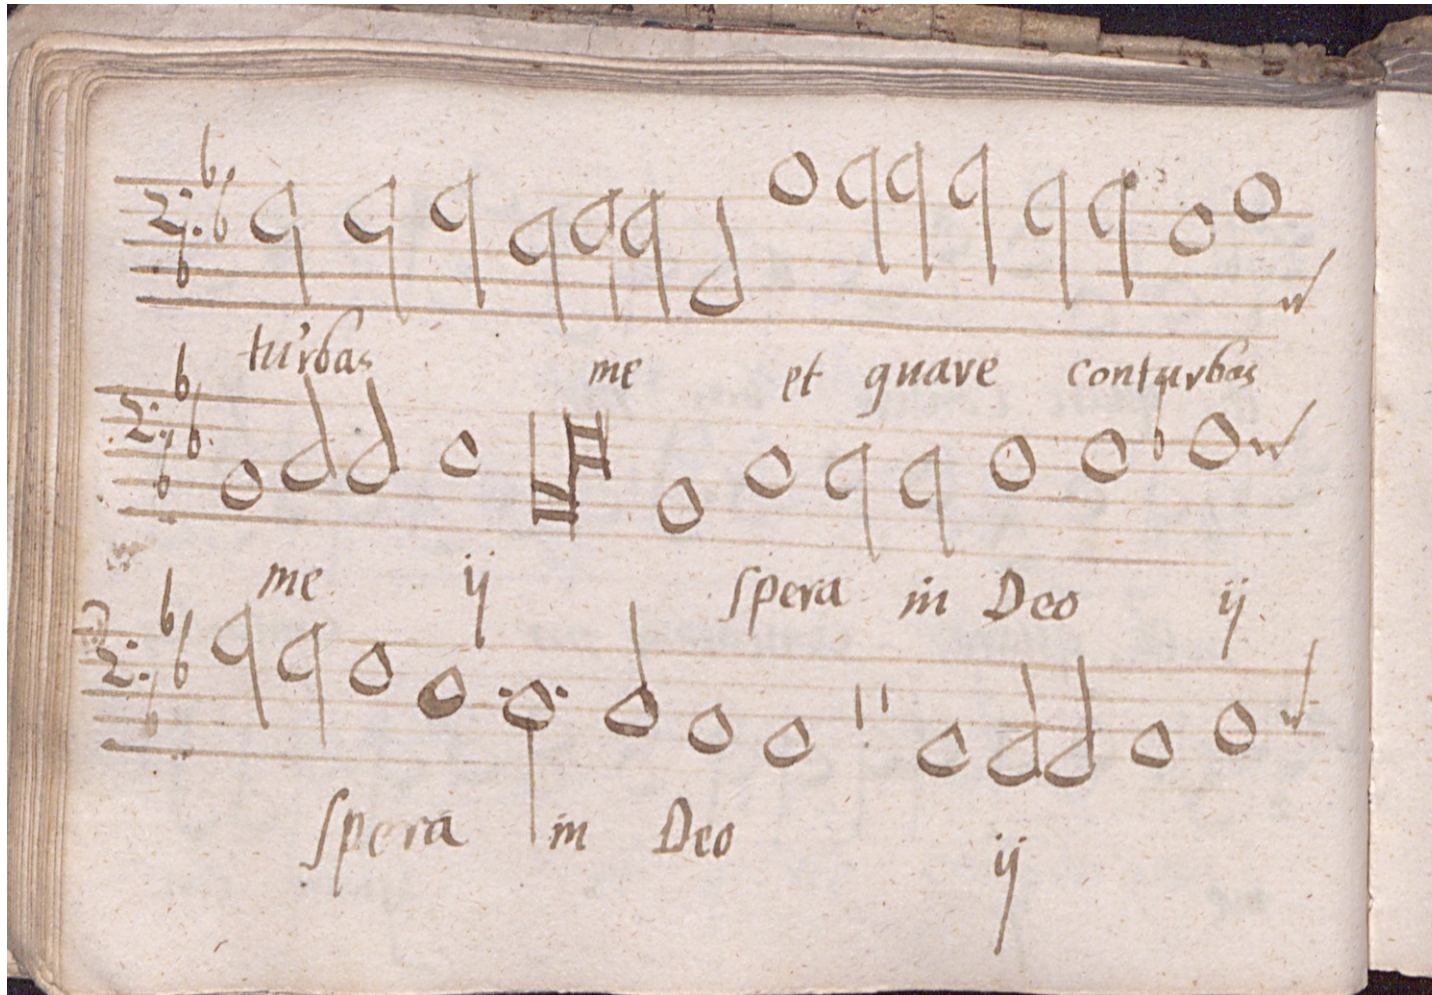 turbas me et quare conturbas
me ij spera in Deo ij
spera in Deo ij